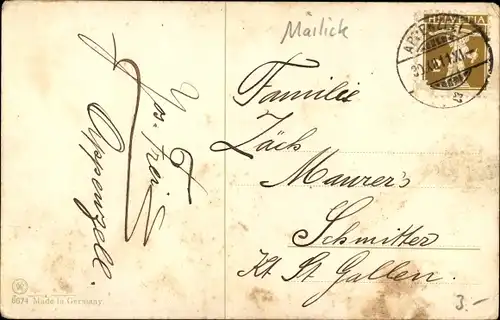 Mailick
HELVETIA
APPENZELL
Familie
Zäch
Maurer's
Schmitter
Kt. St. Gallen.
Appenzell.
6674 Made in Germany
3.-